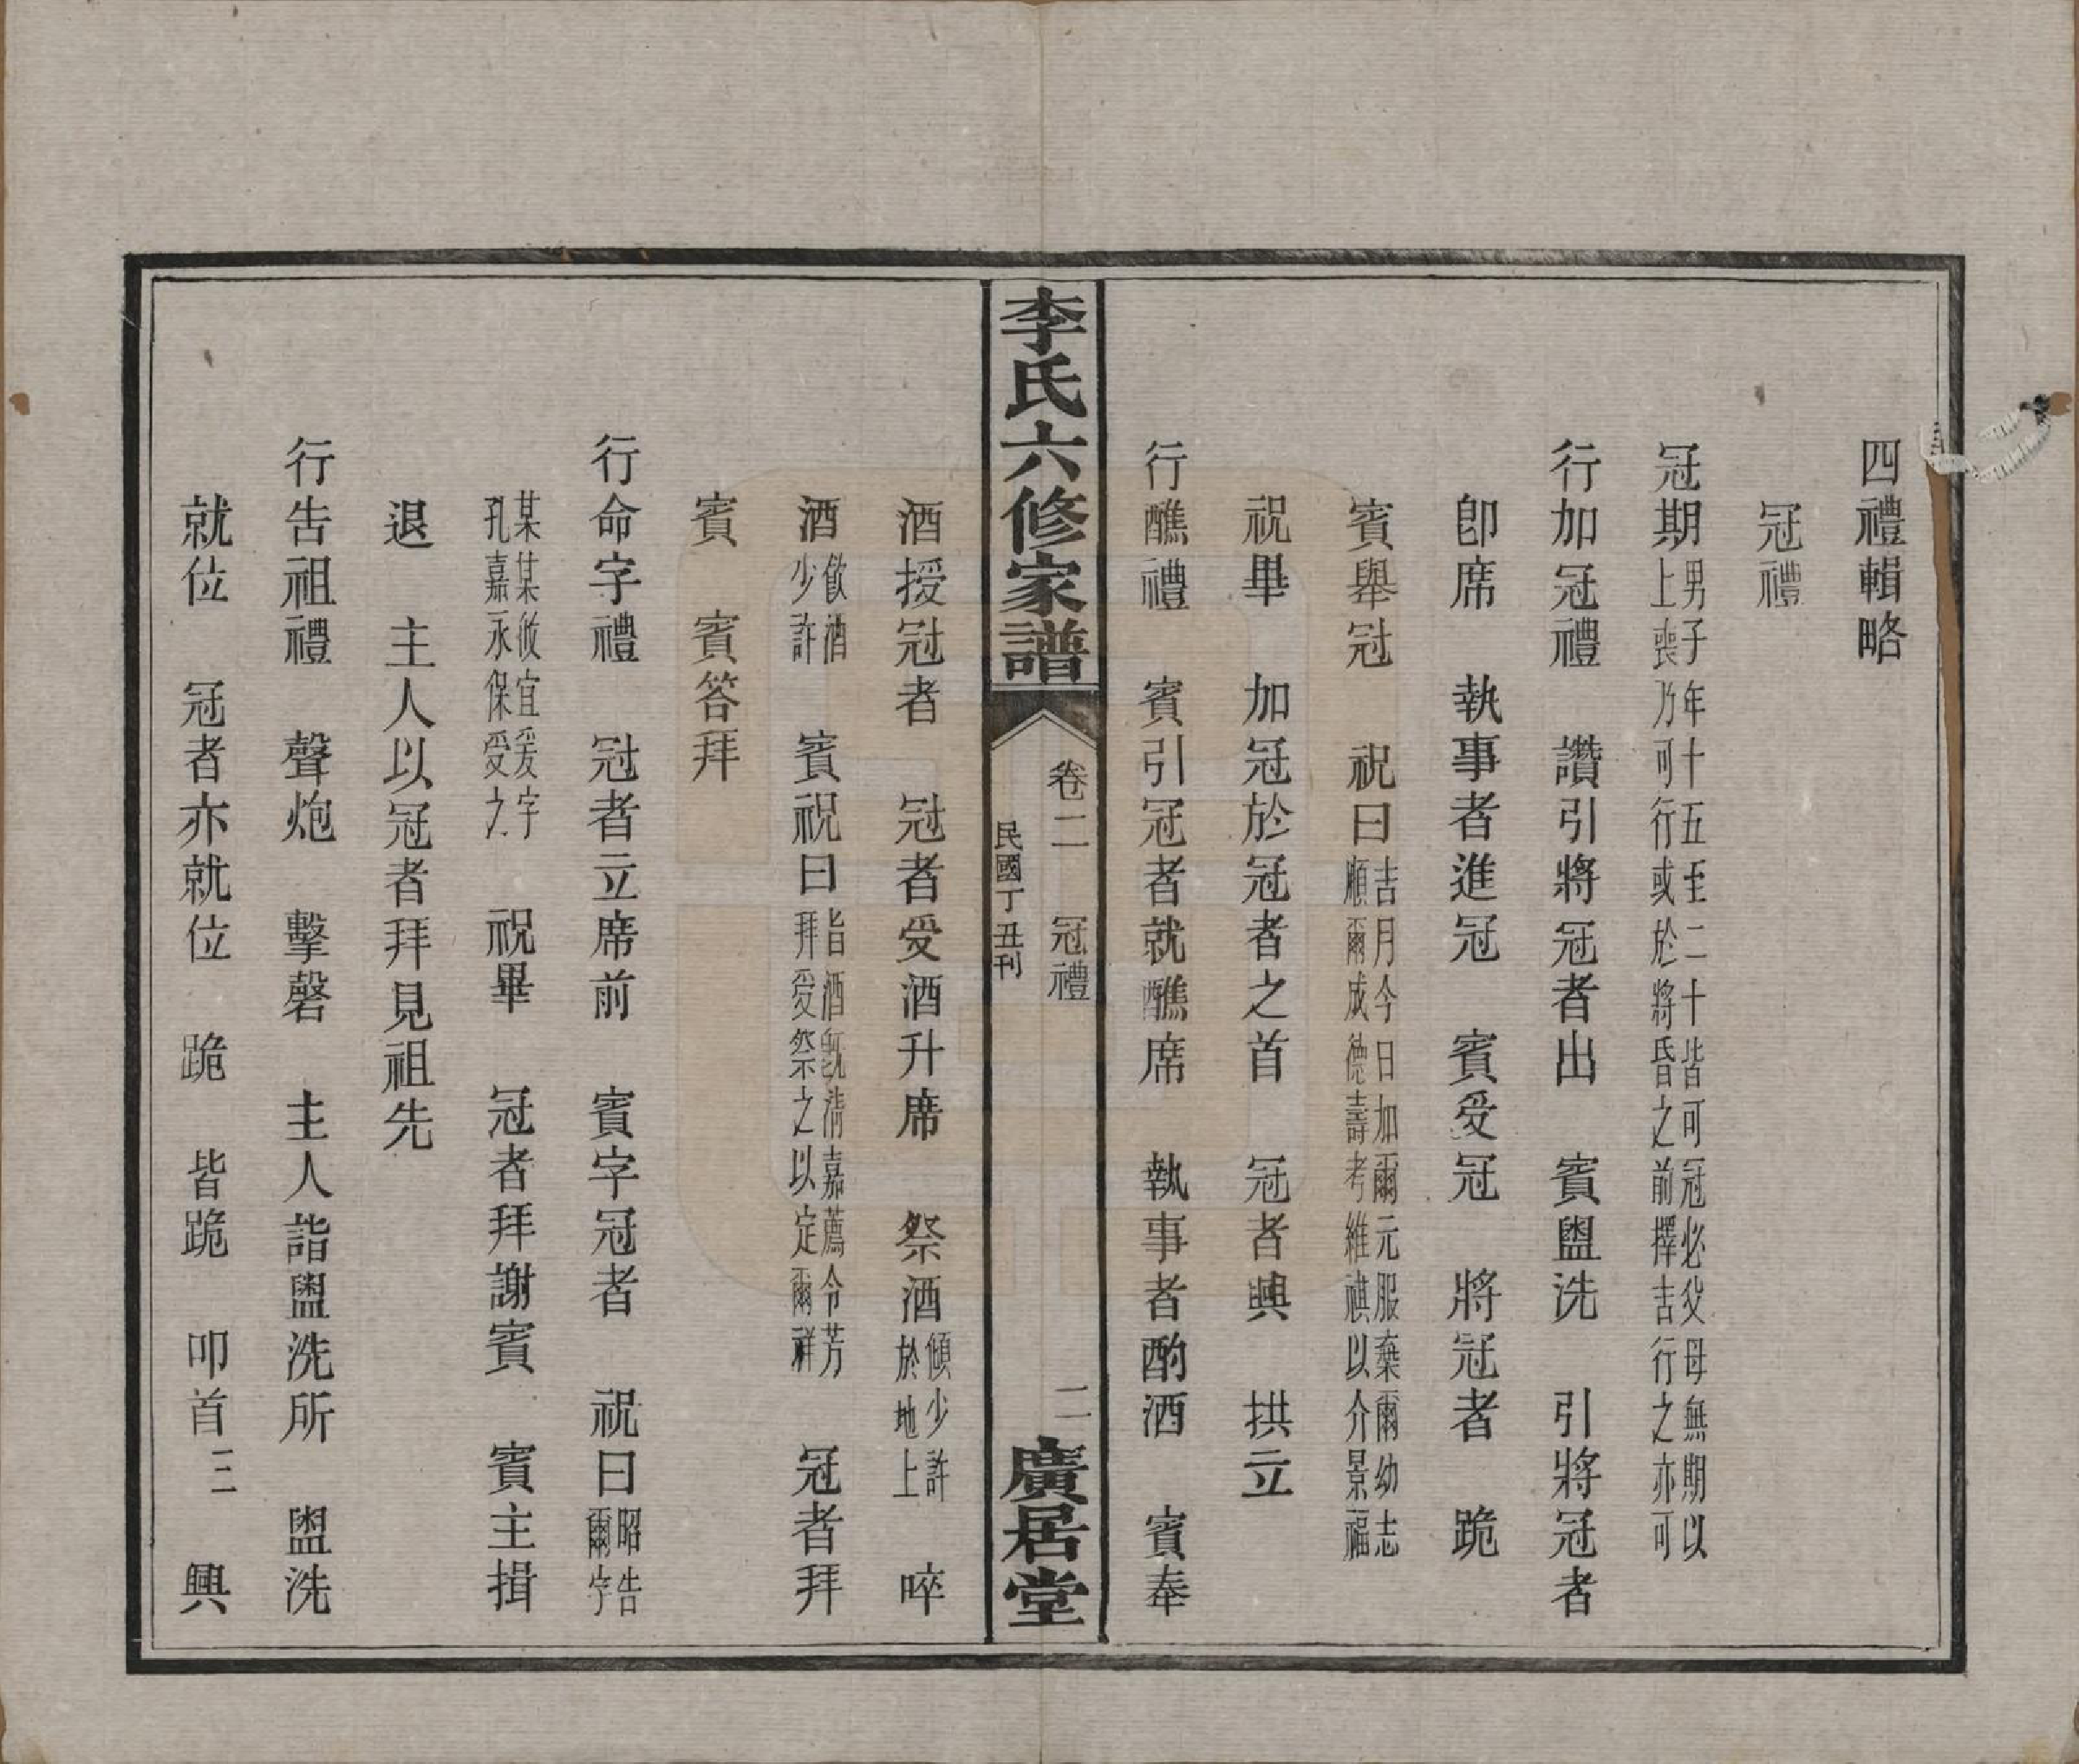 四禮輯略
冠禮
冠期男子年十五至二十皆可冠必父母無期以上喪乃可行或於將昏之前擇吉行之亦可
行加冠禮　讚引將冠者出　賓盥洗　引將冠者
卽席　執事者進冠　賓受冠　將冠者　跪
賓舉冠　祝曰吉月今日加爾元服棄爾幼志順爾成德壽考維祺以介景福
祝畢　加冠於冠者之首　冠者興　拱立
行醮禮　賓引冠者就醮席　執事者酌酒　賓奉
李氏六修家譜
卷二　冠禮
民國丁丑刊
二
廣居堂
酒授冠者　冠者受酒升席　祭酒傾少許於地上　啐
酒飲酒少許　賓祝曰旨酒旣淸嘉薦令芳拜受祭之以定爾祥　冠者拜
賓　賓答拜
行命字禮　冠者立席前　賓字冠者　祝曰昭告爾字
某某攸宜爰字孔嘉永保受之　祝畢　冠者拜謝賓　賓主揖
退　主人以冠者拜見祖先
行告祖禮　聲炮　擊磬　主人詣盥洗所　盥洗
就位　冠者亦就位　跪　皆跪　叩首三　興